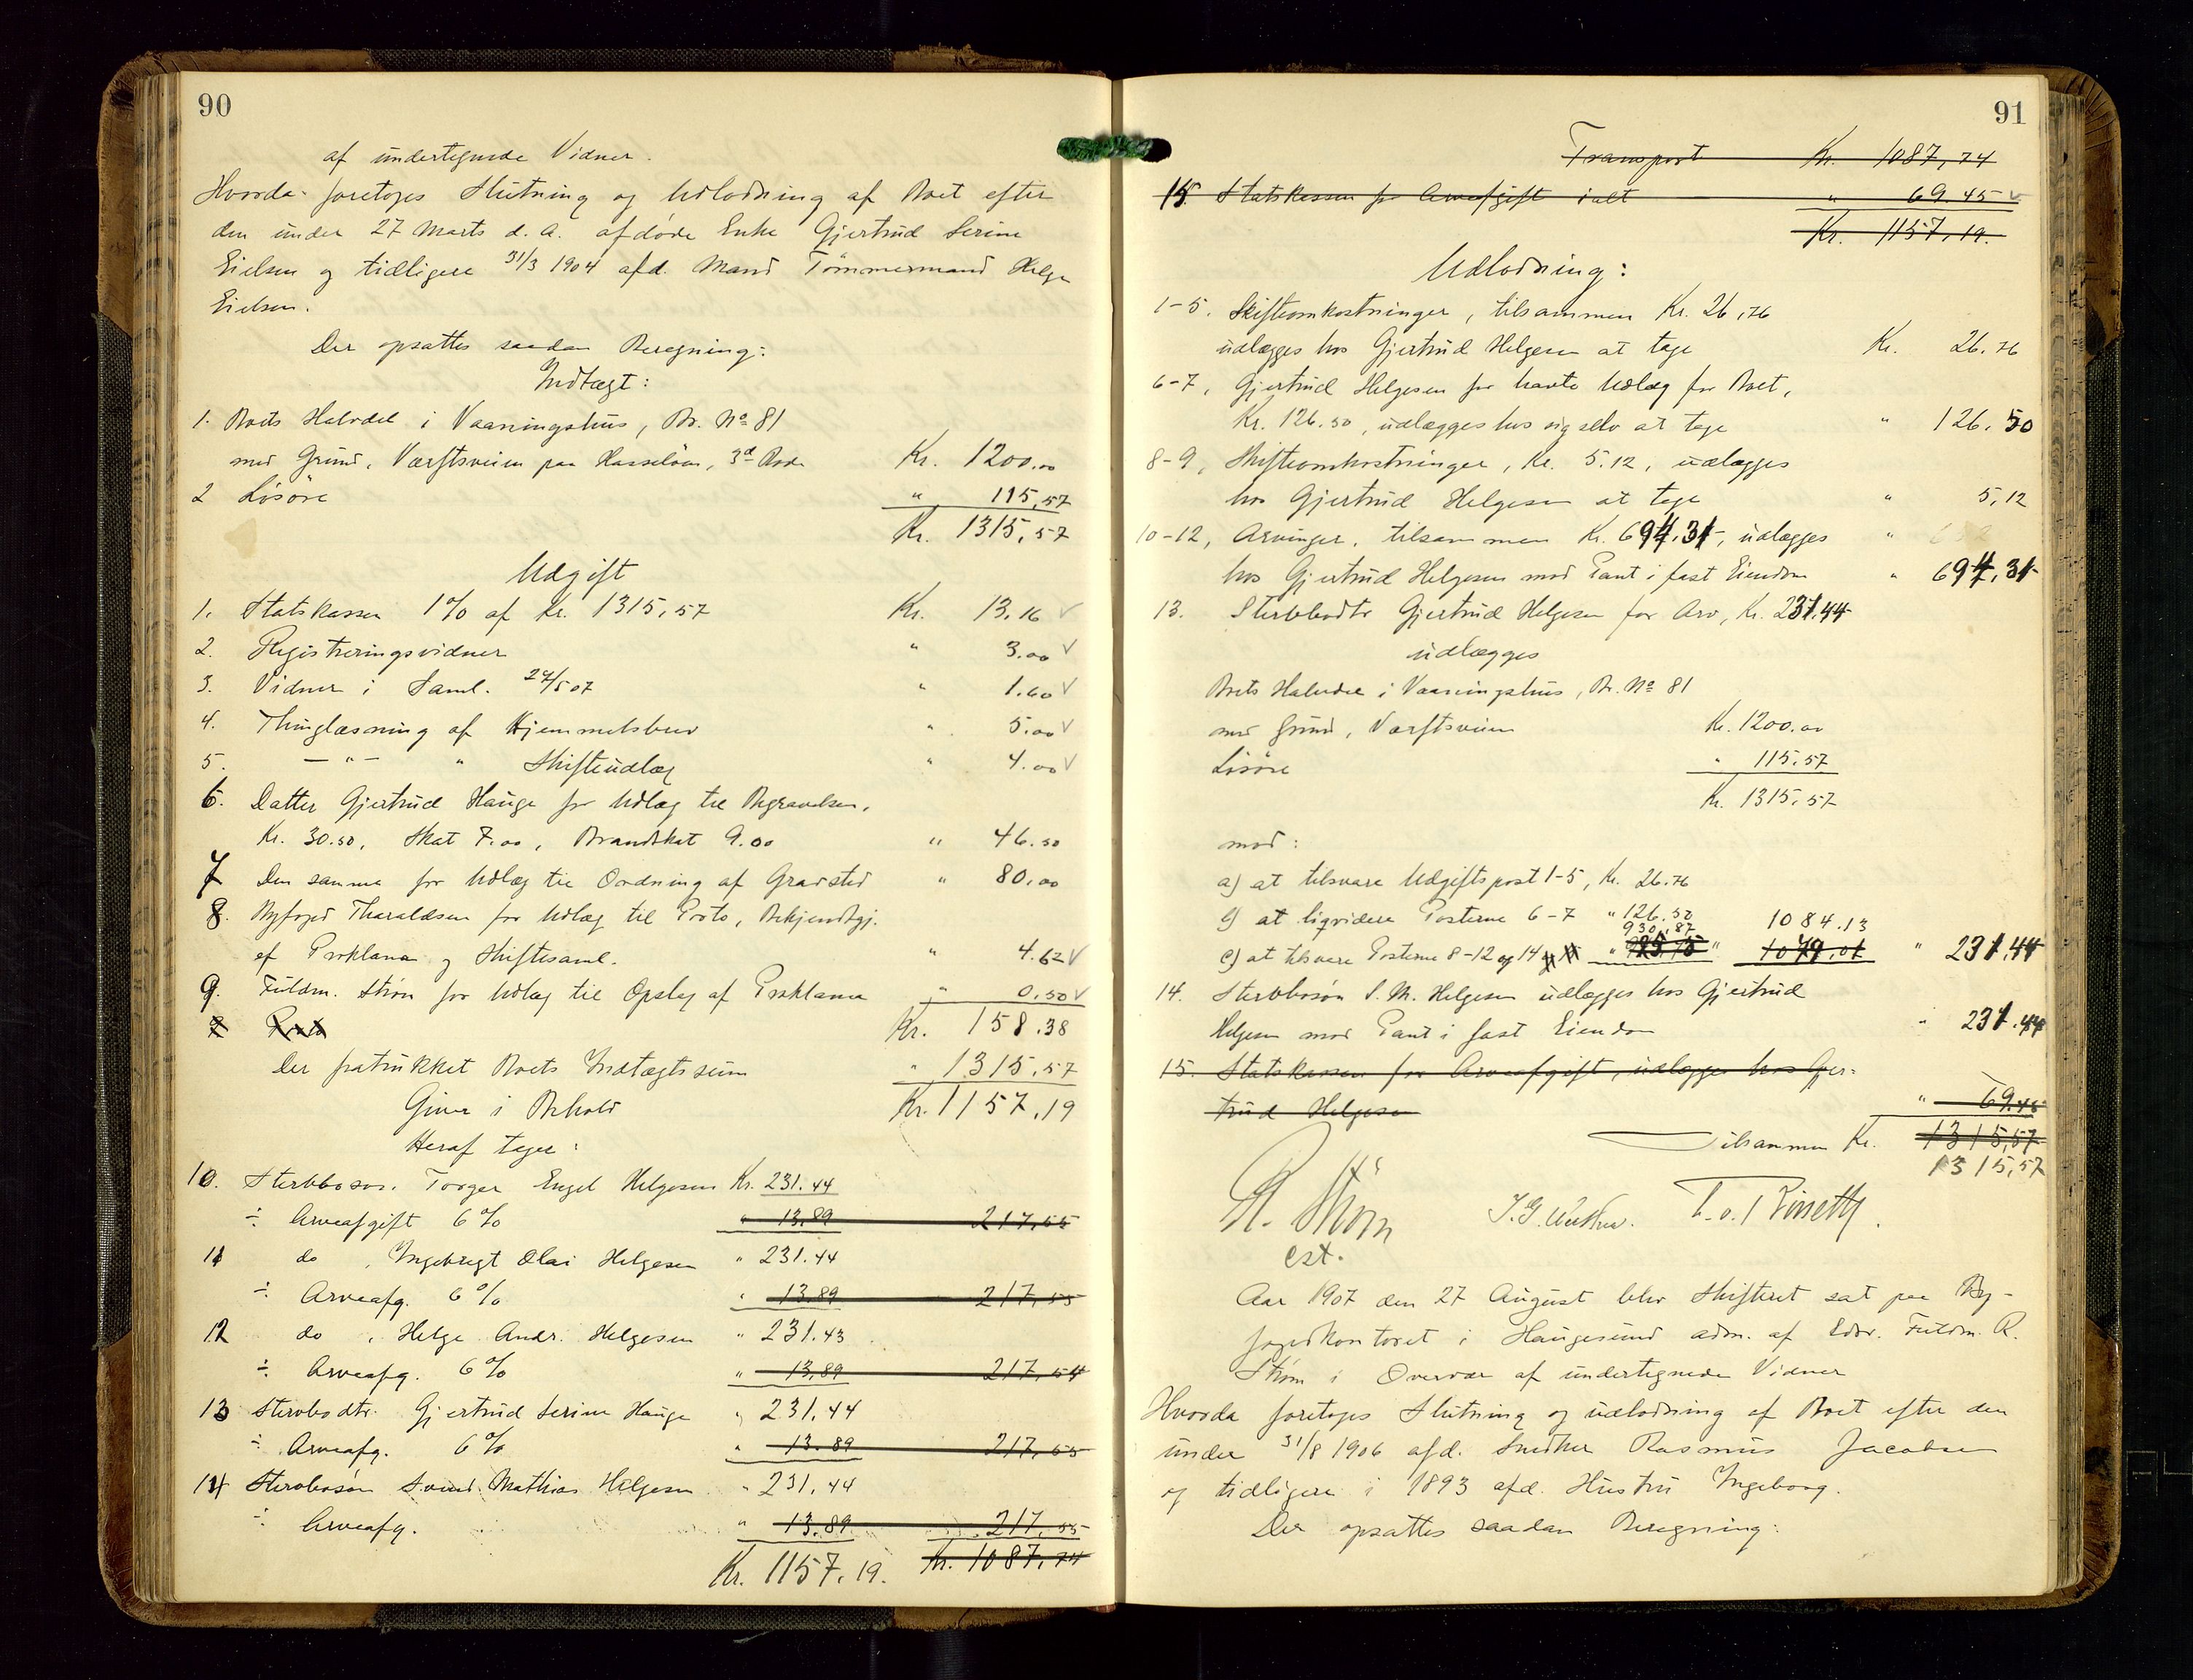 90
af undertegnede Vidner.
Hvorda foretoges Slutning og Udlodning af Boet efter
den under 27 Marts d. A. afdøde Enke Gjertrud Serine
Eielsen og tidligere 31/3 1904 afd. Mand Tømmermand Helge
Eielsen.
Der opsattes saadan Beregning:
Indtægt:
1. Boets Halvdel i Vaaningshus, Br. No 81
med Grund, Værftsveien paa Hasseløen, 3d Rode Kr. 1200.00
2 Løsøre " 115,57
Kr. 1315,57
Udgift
1. Statskassen 1% af Kr. 1315,57 Kr. 13,16 √
2. Registreringsvidner " 3.00 √
3. Vidner i Saml. 27/5 07 " 1.60 √
4. Thinglæsning af Hjemmelsbrev " 5.00 √
5. — " — " Skifteudlæg " 4.00 √
6. Datter Gjertrud Hauge for Udlæg til Begravelsen,
Kr. 30.50, Skat 7.00, Brandskat 9.00 " 46.50
7 Den samme for Udlæg til Ordning af Gravsted " 80,00
8. Byfoged Tharaldsen for Udlæg til Porto, Bekjendtgj.
af Proklama og Skiftesaml. " 4.62 √
9. Fuldm. Strøm for Udlæg til Opslag af Proklama " 0.50 √
Kr. 158.38
Der fratrukket Boets Indtægtssum " 1315,57
Giver i Behold Kr. 1157,19
Heraf tager:
10. Sterbbosøn. Torger Engel Helgesen Kr. 231.44
÷ Arveafgift 6% " 13.89 217,55
11 do , Ingebregt Olai Helgesen " 231.44
÷ Arveafg. 6% " 13.89 217,55
12 do , Helge Andr. Helgesen " 231.43
÷ Arveafg. 6% " 13,89 217,54
13 Sterbbodtr. Gjertrud Serine Hauge " 231,44
÷ Arveafg. 6% " 13.89 217,55
14 Sterbbosøn Svend Mathias Helgesen " 231,44
÷ Arveafg. " 13.89 217,55
Kr. 1157,19. Kr. 1087,74
91
Transport Kr. 1087,74
15. Statskassen for Arveafgift ialt " 69.45 √
Kr. 1157,19.
Udlodning:
1-5. Skifteomkostninger, tilsammen Kr. 26,76
udlægges hos Gjertrud Helgesen at tage Kr. 26.76
6-7, Gjertrud Helgesen for havte Udlæg for Boet,
Kr. 126.50, udlægges hos sig selv at tage " 126.50
8-9, Skifteomkostninger, Kr. 5.12, udlægges
hos Gjertrud Helgesen at tage " 5,12
10-12, Arvinger, tilsammen Kr. 694.31, udlægges "
hos Gjertrud Helgesen mod Pant i fast Eiendom " 694,31
13. Sterbbodtr Gjertrud Helgesen for Arv, Kr. 231.44
udlægges
Boets Halvdel i Vaaningshus, Br. No 81
med Grund, Værftsveien Kr. 1200.00
Løsøre " 115.57
Kr. 1315,57
mod:
a) at tilsvare Udgiftspost 1-5, Kr. 26.76
b) at liqvidere Posterne 6-7 " 126.50 1084.13
930,87
c) at tilsvare Posterne 8-12 og 14 " " 231,44
14. Sterbbosøn S. M. Helgesen udlægges hos Gjertrud
Helgesen mod Pant i fast Eiendom " 231.44
15. Statskassen for Arveafgift, udlægges hos Gjer-
trud Helgesen " 69.45
Tilsammen Kr. 1315,57
1315,57
R. Strøm
cst.
Aar 1907 den 27 August blev Skifteret sat paa By-
fogedkontoret i Haugesund adm. af Edsv. Fuldm. R.
Strøm i Overvær af undertegnede Vidner
Hvorda foretoges Slutning og udlodning af Boet efter den
under 31/8 1906 afd. Snedker Rasmus Jacobsen
og tidligere i 1893 afd. Hustru Ingeborg.
Der opsattes saadan Beregning: